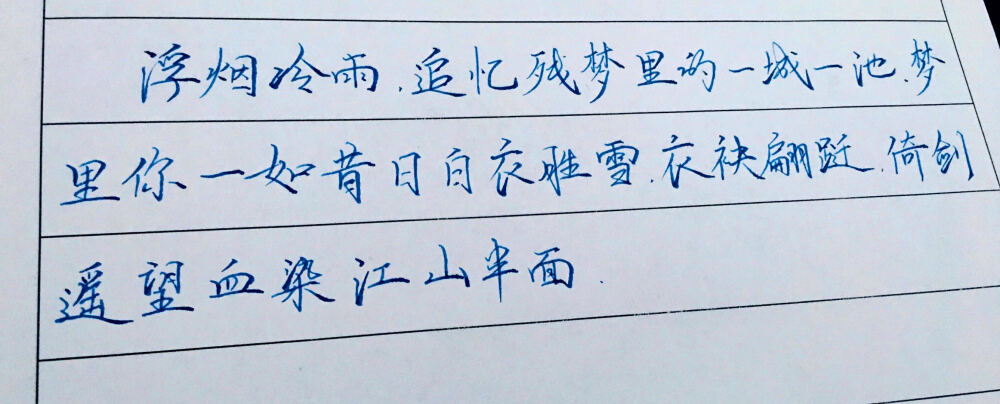 浮烟冷雨.追忆残梦里的一城一池.梦
里你一如昔日白衣胜雪.衣袂翩跹.倚剑
遥望血染江山半面.